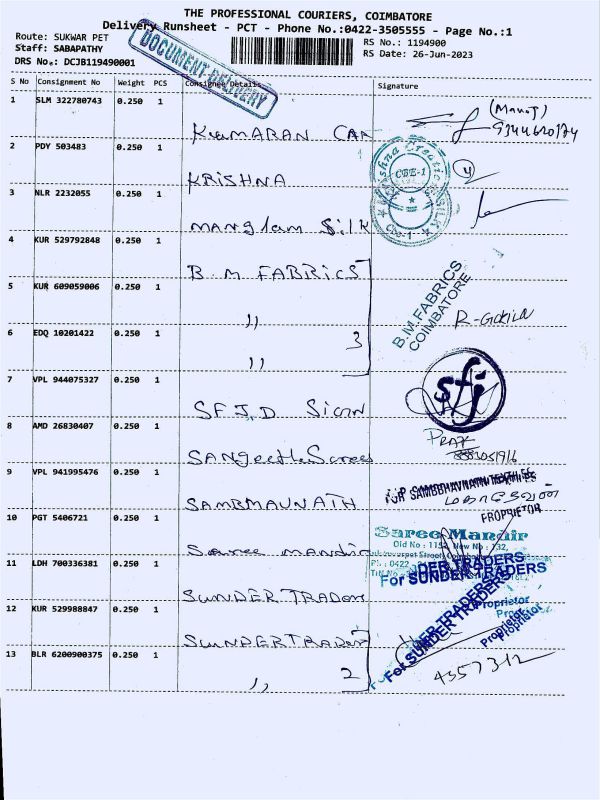 THE PROFESSIONAL COURIERS, COIMBATORE
Delivery Runsheet - PCT - Phone No.:0422-3505555 - Page No.:1
Route: SUKWAR PET
RS No.: 1194900
Staff: SABAPATHY
RS Date: 26-Jun-2023
DRS No.: DCJB119490001
DOCUMENT DELIVERY
S No Consignment No Weight PCS Consignee Details Signature
1 SLM 322780743 0.250 1
KUMARAN (Manoj)
2 PDY 503483 0.250 1
KRISHNA CBE-1 4
3 NLR 2232055 0.250 1
Manglam Silk CBE-1
4 KUR 529792848 0.250 1
B M FABRICS
B.M.FABRICS
COIMBATORE
5 KUR 609059006 0.250 1
,, R-Gokila
6 EDQ 10201422 0.250 1
,, 3
sfj
7 VPL 944075327 0.250 1
SFJ.D Sign
8 AMD 26830407 0.250 1
9 VPL 941995476 0.250 1
SAMBHAVNATH
PROPRIETOR
10 PGT 5406721 0.250 1
Saree mandir
Saree Mandir
11 LDH 700336381 0.250 1
For SUNDER TRADERS
SUNDER TRADERS
Proprietor
12 KUR 529988847 0.250 1
SUNDER TRADERS
For SUNDER TRADERS
Proprietor
13 BLR 6200900375 0.250 1
,, 2
4357312